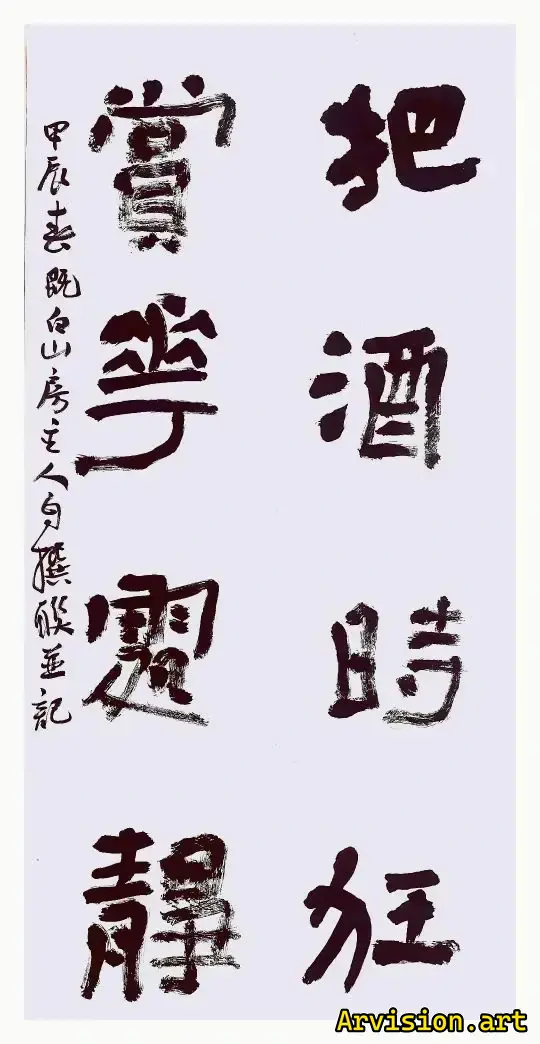 把酒時狂
賞花處靜
甲辰春既白山房主人自撰聯並記
Arvision.art